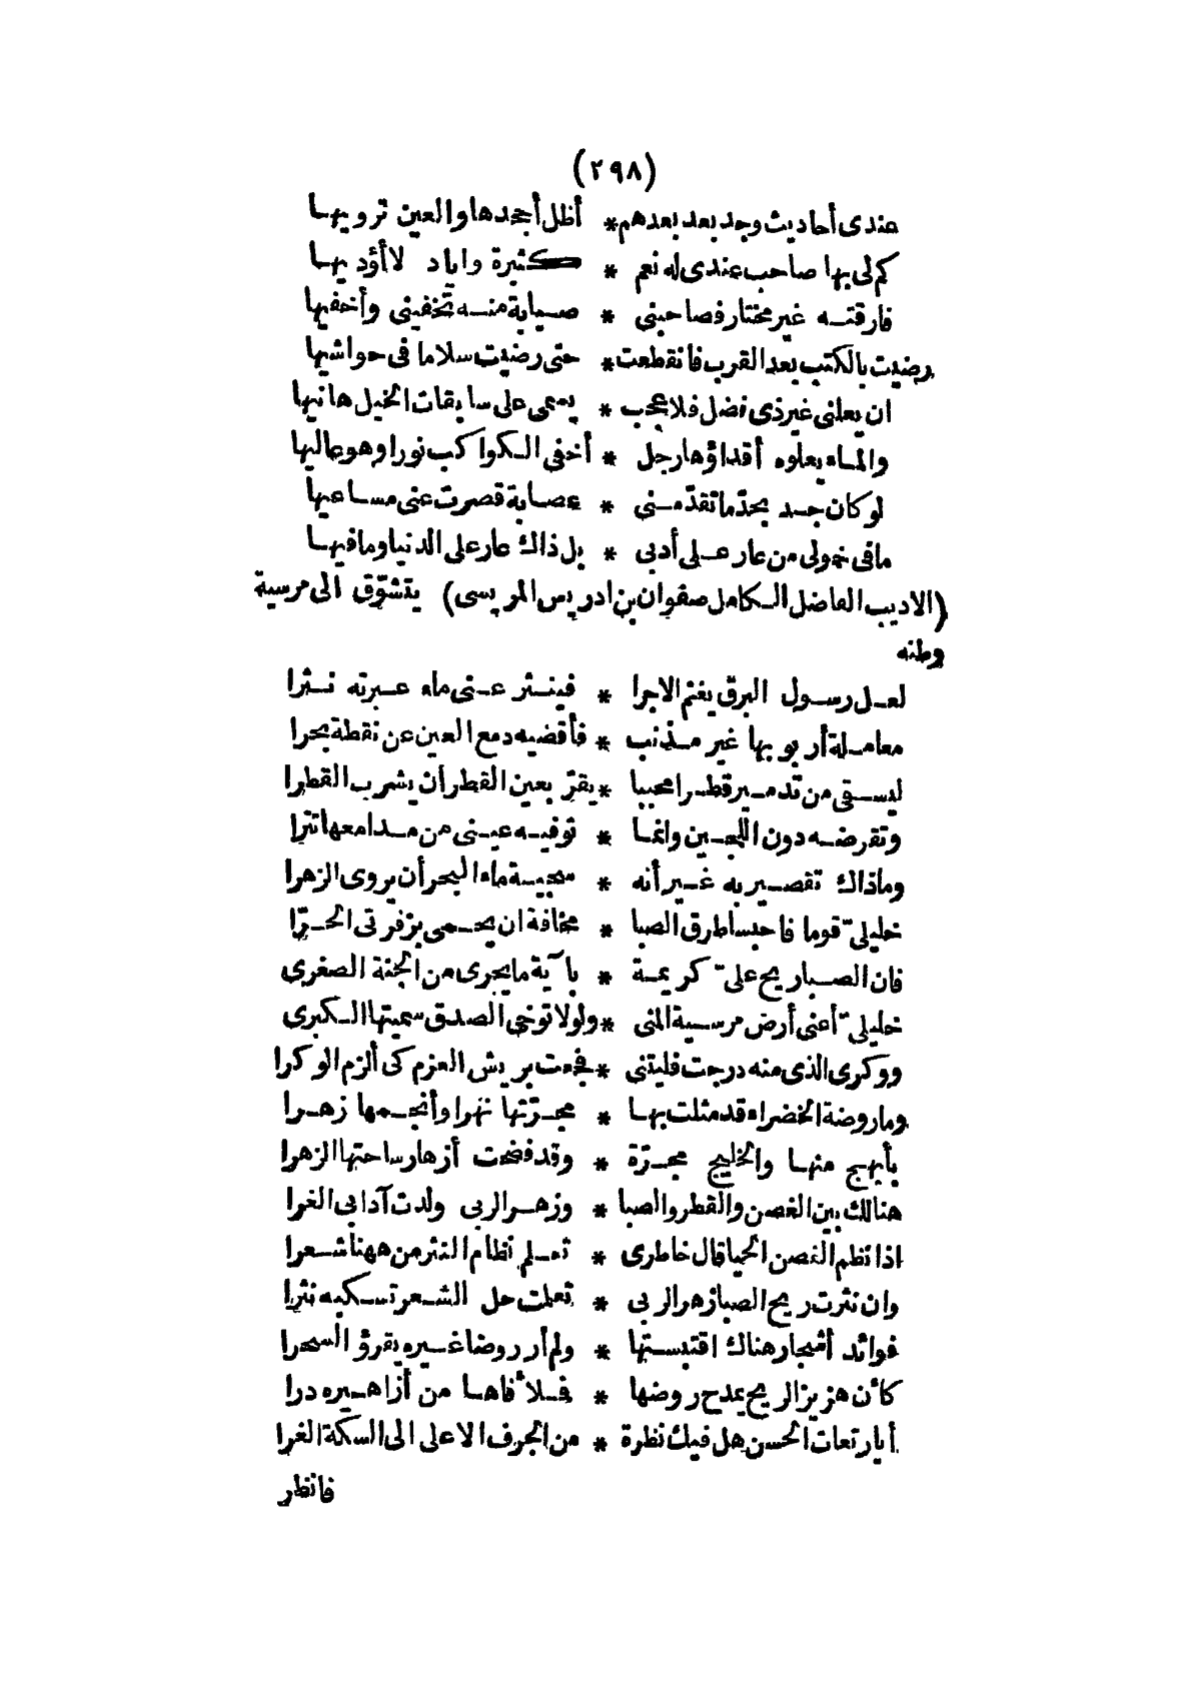 (٢٩٨)
عندى أحاديث وجد بعد بعدهم * أظل أجحدها والعين ترويها
كم لى بها صاحب عندى له نعم * كثيرة واياد لا أؤديها
فارقته غير مختار فصاحبنى * صبابة منه تخفينى وأخفيها
رضيت بالكتب بعد القرب فانقطعت * حتى رضيت سلاما فى حواشيها
ان يعلنى غير ذى فضل فلا عجب * يسمى على سابقات الخيل هانيها
والماء يعلوه أقذاؤها رجل * أخفى الكواكب نورا وهو عاليها
لو كان جد بجد ما تقدمنى * عصابة قصرت عنى مساعيها
ما فى خمولى من عار على أدبى * بل ذاك عار على الدنيا وما فيها
(الاديب الفاضل الكامل صفوان بن ادريس المريسى) يتشوّق الى مرسية
وطنه
لعل رسول البرق يغنم الاجرا * فينثر عنى ماء عبرته نثرا
معاملة أربو بها غير مذنب * فأقضيه دمع العين عن نقطة بحرا
ليسقى من تدمير قطرا محببا * يقرّ بعين القطر أن يشرب القطرا
وتقرضه دون اللجين وانما * توفيه عينى من مدامعها تترا
وماذاك تقصير به غير أنه * سجية ماء البحر أن يروى الزهرا
خليلىّ قوما فاحبسا طرق الصبا * مخافة ان يحمى بزفرتى الحرّا
فان الصبا ريح علىّ كريمة * بآية ما يجرى من الجنة الصغرى
خليلىّ أعنى أرض مرسية المنى * ولولا توخى الصدق سميتها الكبرى
ووكرى الذى منه درجت فليتنى * فجعت بريش العزم كى ألزم الوكرا
وما روضة الخضراء قد مثلت بها * مجرّتها نهرا وأنجمها زهرا
بأبهج منها والخليج مجرّة * وقد فضحت أزهار ساحتها الزهرا
هنالك بين الغصن والقطر والصبا * وزهر الربى ولدت آدابى الغرا
اذا نظم الغصن الحيا قال خاطرى * تعلم نظام النثر من ههنا شعرا
وان نثرت ريح الصبا زهر الربى * تعلمت حل الشعر تسكبه نثرا
فوائد أشجار هناك اقتبستها * ولم أر روضا غيره يقرؤ السحرا
كأن هزيز الريح يمدح روضها * فلأ فاها من أزاهيره درا
أيا رتعات الحسن هل فيك نظرة * من الجرف الاعلى الى السكة الغرا
فانظر